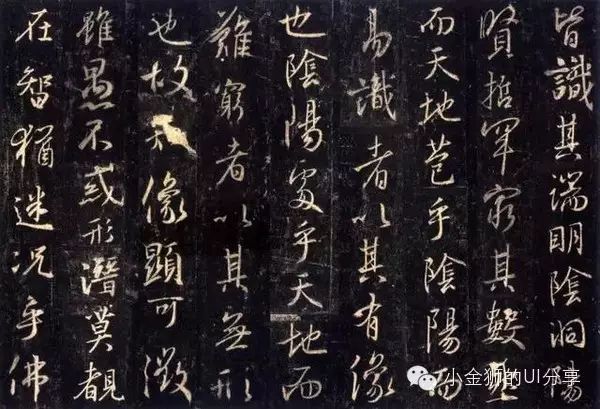 皆識其端明陰洞陽
賢哲罕窮其數然
而天地苞乎陰陽而
易識者以其有像
也陰陽處乎天地而
難窮者以其無形
也故像顯可徵
雖愚不惑形潛莫覩
在智猶迷況乎佛
小金狮的UI分享